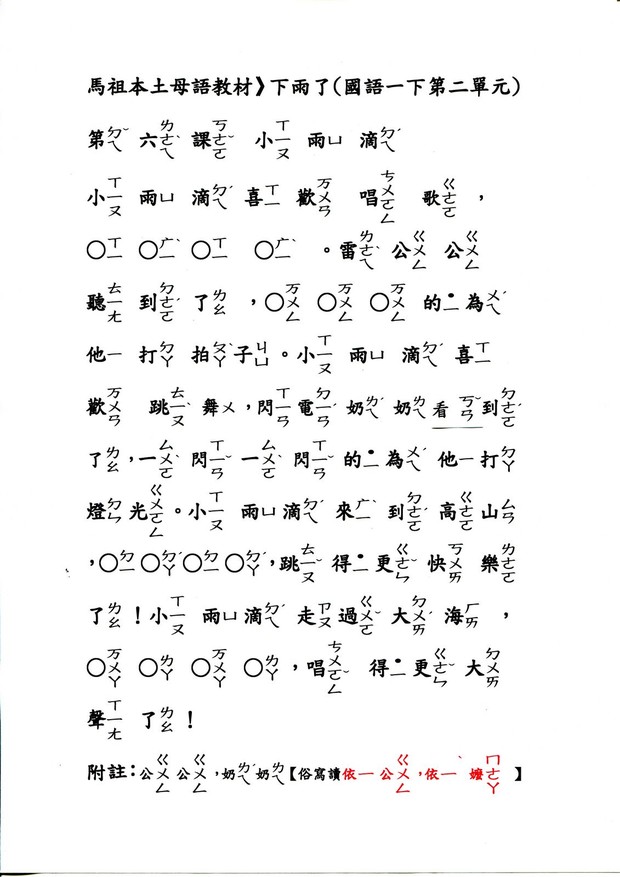 馬祖本土母語教材》下雨了(國語一下第二單元)
第ㄉㄟˇ 六ㄌㄜㄟ 課ㄎㄜㄛ 小ㄒㄧㄡ 雨ㄩ 滴ㄉㄟˊ
小ㄒㄧㄡ 雨ㄩ 滴ㄉㄟˊ 喜ㄒㄧ 歡ㄏㄨㄢ 唱ㄘㄨㄛㄥ 歌ㄍㄜㄛ ,
○ㄒㄧ ○ㄏㄧˋ ○ㄒㄧ ○ㄏㄧˋ 。雷ㄌㄜㄟˋ 公ㄍㄨㄥ 公ㄍㄨㄥ
聽ㄊㄧㄤ 到ㄉㄜㄛˋ 了ㄌㄠ ,○ㄎㄨㄥ ○ㄎㄨㄥ ○ㄎㄨㄥ 的˙ㄧ 為ㄨㄟˊ
他ㄧ 打ㄉㄚ 拍ㄉㄚˇ子ㄐㄩ。小ㄒㄧㄡ 雨ㄩ 滴ㄉㄟˊ 喜ㄒㄧ
歡ㄏㄨㄢ 跳ㄊㄧㄡˋ 舞ㄨ,閃ㄒㄧㄢ電ㄉㄧㄢˊ 奶ㄌㄟˊ 奶ㄌㄟ看ㄎㄢˇ到ㄉㄜㄛˋ
了ㄌㄠ,一ㄙㄨㄛ 閃ㄒㄧㄢˇ 一ㄙㄨㄛ 閃ㄒㄧㄢˇ 的˙ㄧ為ㄨㄟˊ 他ㄧ打ㄉㄚ
燈ㄉㄣ 光ㄍㄨㄛㄥ。小ㄒㄧㄡ 雨ㄩ滴ㄉㄟˊ 來ㄌㄧˋ 到ㄉㄜㄛˋ 高ㄍㄜㄛ山ㄙㄢ
,○ㄉㄧ○ㄉㄚˊ○ㄉㄧ○ㄉㄚˊ,跳ㄊㄧㄡˇ 得˙ㄧ更ㄍㄜㄣˇ 快ㄎㄨㄞ 樂ㄌㄜㄛˋ
了ㄌㄠ!小ㄒㄧㄡ 雨ㄩ滴ㄉㄟˊ 走ㄗㄡ 過ㄍㄨㄛˊ大ㄉㄨㄞˊ 海ㄏㄞ ,
○ㄎㄨㄚ ○ㄌㄚˊ ○ㄎㄨㄚ ○ㄌㄚˊ,唱ㄘㄨㄛㄥˇ 得˙ㄧ更ㄍㄜㄣˇ 大ㄉㄨㄞˊ
聲ㄒㄧㄤ 了ㄌㄠ!
附註:公ㄍㄨㄥ公ㄍㄨㄥ,奶ㄌㄟˊ奶ㄌㄟ【俗寫讀依ㄧ公ㄍㄨㄥ,依ㄧˋ 嬤ㄇㄜㄚ】